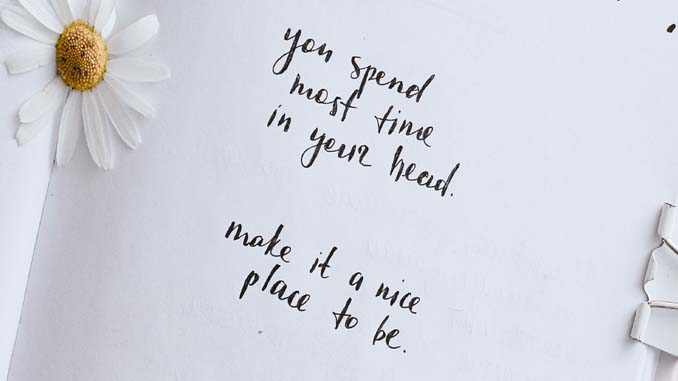 you spend
most time
in your head.
make it a nice
place to be.